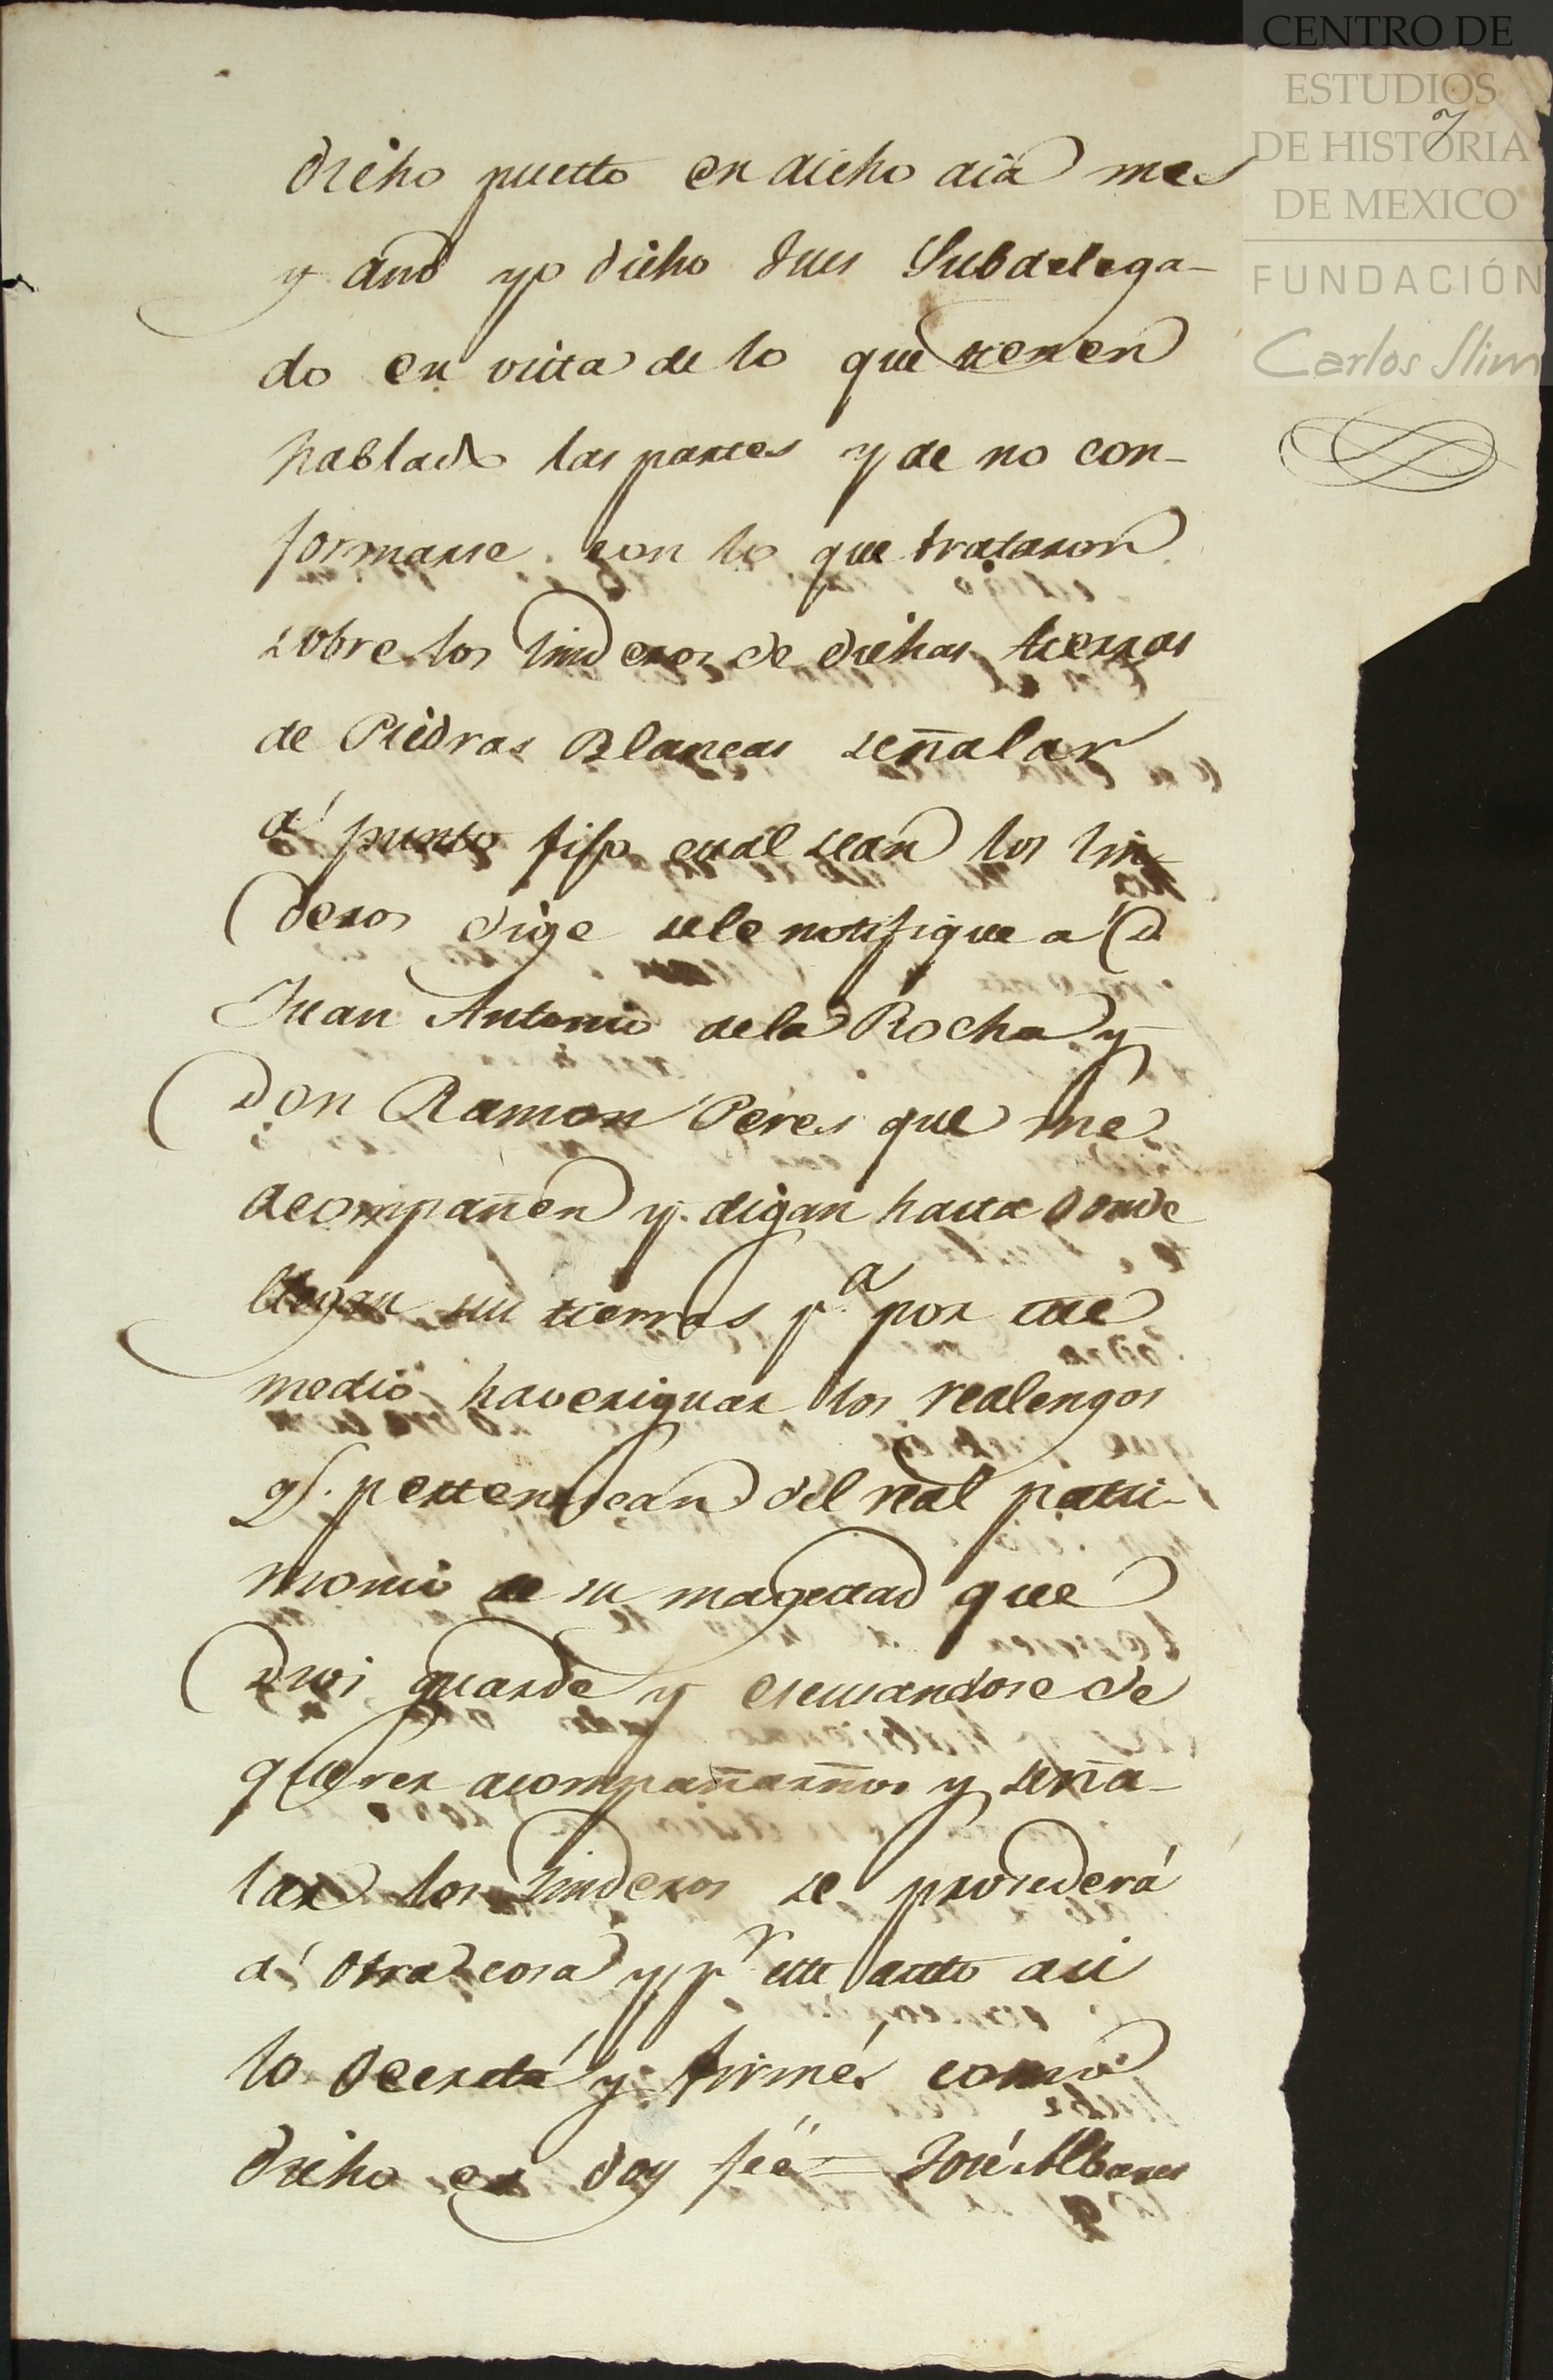 CENTRO DE
ESTUDIOS
DE HISTORIA
DE MEXICO
FUNDACIÓN
Carlos Slim
7
dicho puesto en dicho dia mes
y año yo dicho Jues Subdelega-
do en vista de lo que tienen
hablado las partes y de no con-
formarse con lo que trataron
sobre los linderos de dichas tierras
de Piedras Blancas señalar
á punto fijo cual sean los lin-
deros dige se le notifique a D
Juan Antonio de la Rocha y
Don Ramon Peres que me
acompañen y digan hasta donde
llegan sus tierras pa por este
medio haveriguar los realengos
q. pertenescan del real patri-
monio de su magestad que
Dios guarde y escusandose de
querer acompañarños y seña-
lar los linderos se prosederá
á otra cosa y pr este auto asi
lo decreté y firmé como
dicho es doy feé = José Albares